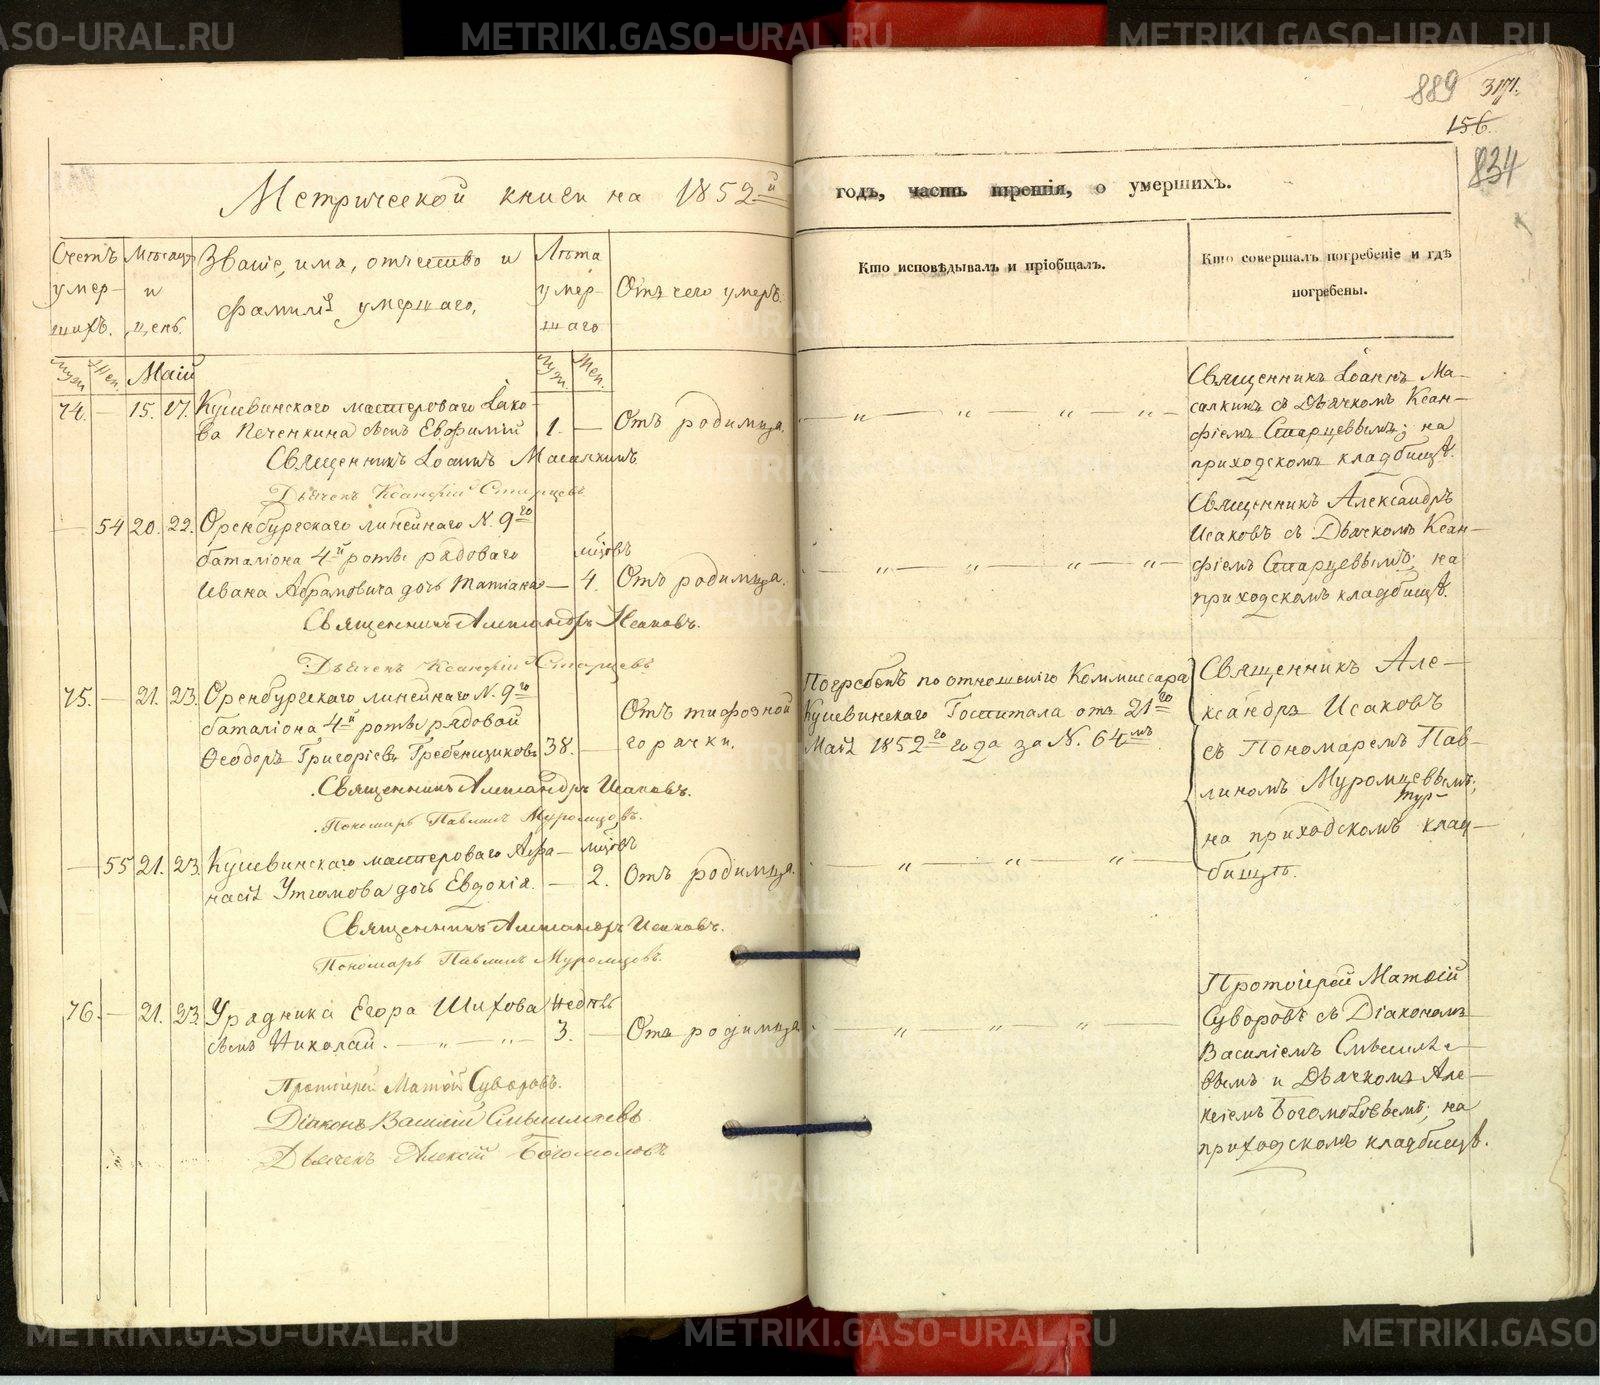 METRIKI.GASO-URAL.RU
889 317.
156.
834
Метрической книги на 1852й
годъ, часть третія, о умершихъ.
Счетъ умер-шихъ.
Мѣсяцъ и день.
Званіе, имя, отчество и фамилія умершаго.
Лѣта умер-шаго
Отъ чего умеръ.
Кто исповѣдывалъ и пріобщалъ.
Кто совершалъ погребеніе и гдѣ погребены.
Муж. Жен. Маій Муж. Жен.
74. — 15. 17. Кушвинскаго мастероваго Іако-
ва Печенкина сынъ Евфимій 1. — Отъ родимца.
Священникъ Іоаннъ Масалкинъ
Дьячекъ Ксанфій Старцевъ
Священникъ Іоаннъ Ма-
салкинъ съ Дьячкомъ Ксан-
фіемъ Старцевымъ; на
приходскомъ кладбищѣ.
— 54 20. 22. Оренбургскаго линейнаго N. 9го
баталіона 4й роты рядоваго мцовъ
Ивана Абрамовича дочь Татіана — 4. Отъ родимца.
Священникъ Александръ Исаковъ.
Дьячекъ Ксанфій Старцевъ
Священникъ Александръ
Исаковъ съ Дьячкомъ Ксан-
фіемъ Старцевымъ; на
приходскомъ кладбищѣ.
75. — 21. 23. Оренбургскаго линейнаго N. 9го
баталіона 4й роты рядовой
Ѳеодоръ Григоріевъ Гребенщиковъ 38. — Отъ тифозной
горячки.
Священникъ Александръ Исаковъ.
Пономарь Павлинъ Муромцовъ.
Погребенъ по отношенію Коммиссара
Кушвинскаго Госпитала отъ 21го
Маія 1852го года за N. 64мъ
Священникъ Але-
ксандръ Исаковъ
съ Пономаремъ Пав-
линомъ Муромцевымъ;
на приходскомъ клад-
бищѣ.
— 55 21. 23. Кушвинскаго мастероваго Аѳа- мцовъ
насія Утгомова дочь Евдокія. — 2. Отъ родимца.
Священникъ Александръ Исаковъ.
Пономарь Павлинъ Муромцовъ.
76. — 21. 23. Урядника Егора Шихова недѣль
сынъ Николай. 3. — Отъ родимца
Протоіерей Матѳій Суворовъ.
Діаконъ Василій Смышляевъ
Дьячекъ Алексій Богомоловъ
Протоіерей Матѳій
Суворовъ съ Діакономъ
Василіемъ Смышляе-
вымъ и Дьячкомъ Але-
ксіемъ Богомоловымъ; на
приходскомъ кладбищѣ.